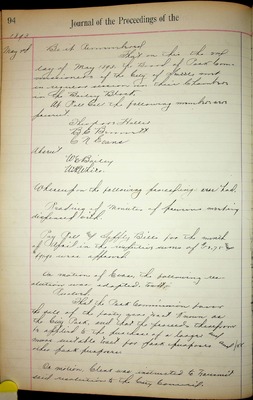 94
Journal of the Proceedings of the
1892
May 2nd
Be it Remembered
That on this the 2nd
day of May 1892 the Board of Park Com-
missioners of the City of
in regular session in their Chamber
in the Bailey Block
At Roll Call the following members were
present
Theodore Hollis
C. N. Evans
Absent
W. E. Bailey
W. H. White
Whereupon the following proceedings were had.
Reading of Minutes of previous meeting
dispensed with.
Pay Roll & Supply Bills for the month
of April in the respective sums of
were approved
On motion of Evans, the following res-
olution was adopted
Resolved
That the Park Commission favor
the sale of the forty acre tract known as
the City Park, and that the proceeds therefrom
be applied to the purchase of a larger and
more suitable tract for park purposes
other park purposes
On motion Clerk was instructed to transmit
said resolution to the City Council.